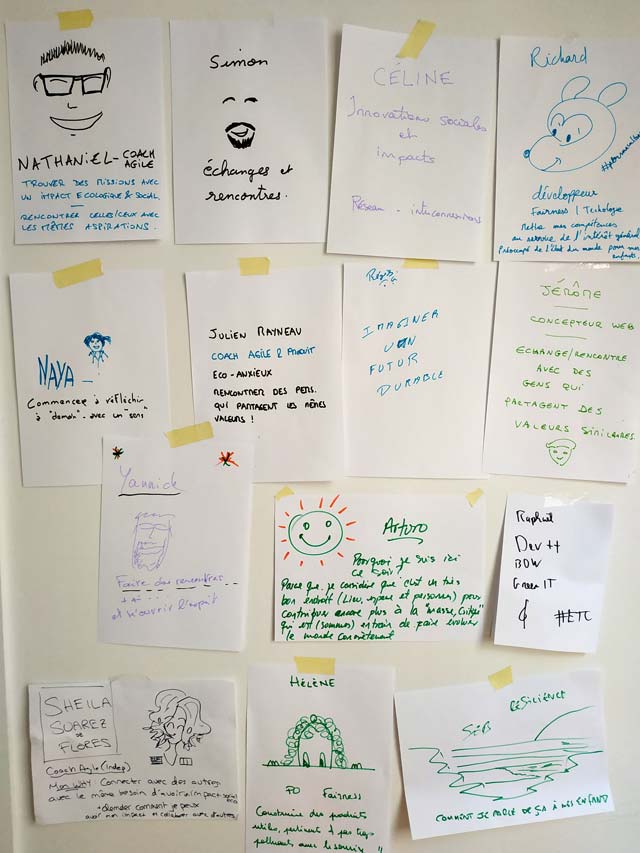 NATHANIEL - COACH AGILE
TROUVER DES MISSIONS AVEC
UN IMPACT ECOLOGIQUE & SOCIAL.
RENCONTRER CELLES/CEUX AVEC
LES MÊMES ASPIRATIONS.
Simon
échanges et
rencontres.
CÉLINE
Innovations sociales
et
impacts
Réseau - interconnexions
Richard
développeur
Fairness | Technologie
Mettre mes compétences
au service de l'intérêt général
Préoccupé de l'état du monde pour mes
enfants.
NAYA
Commencer à réfléchir
à "demain" - avec un "sens"
JULIEN RAYNEAU
COACH AGILE & PRODUIT
ECO-ANXIEUX
RENCONTRER DES PERS.
QUI PARTAGENT LES MÊMES
VALEURS !
IMAGINER
UN
FUTUR
DURABLE
JÉRÔME
CONCEPTEUR WEB
ECHANGE/RENCONTRE
AVEC DES
GENS QUI
PARTAGENT DES
VALEURS SIMILAIRES
Yannick
Faire des rencontres
et s'ouvrir l'esprit
Arturo
Pourquoi je suis ici
ce soir?
Parce que je considère que c'est un très
bon endroit (Lieu, espace et personnes) pour
contribuer encore plus à la "masse critique"
qui est (sommes) en train de faire évoluer
le monde concrètement
Raphaël
Dev ++
BDW
Green IT
#ETC
SHEILA
SUAREZ
DE
FLORES
Coach Agile (Indep)
Mon WHY: Connecter avec des autres
avec le même besoin d'avoir un impact social
éco
+ demander comment je peux
avoir mon impact et collaborer avec d'autres
HÉLÈNE
PO Fairness
Construire des produits
utiles, pertinents & pas trop
polluants avec le sourire
SEB
RÉSILIENCE
COMMENT JE PARLE DE ÇA À MES ENFANTS